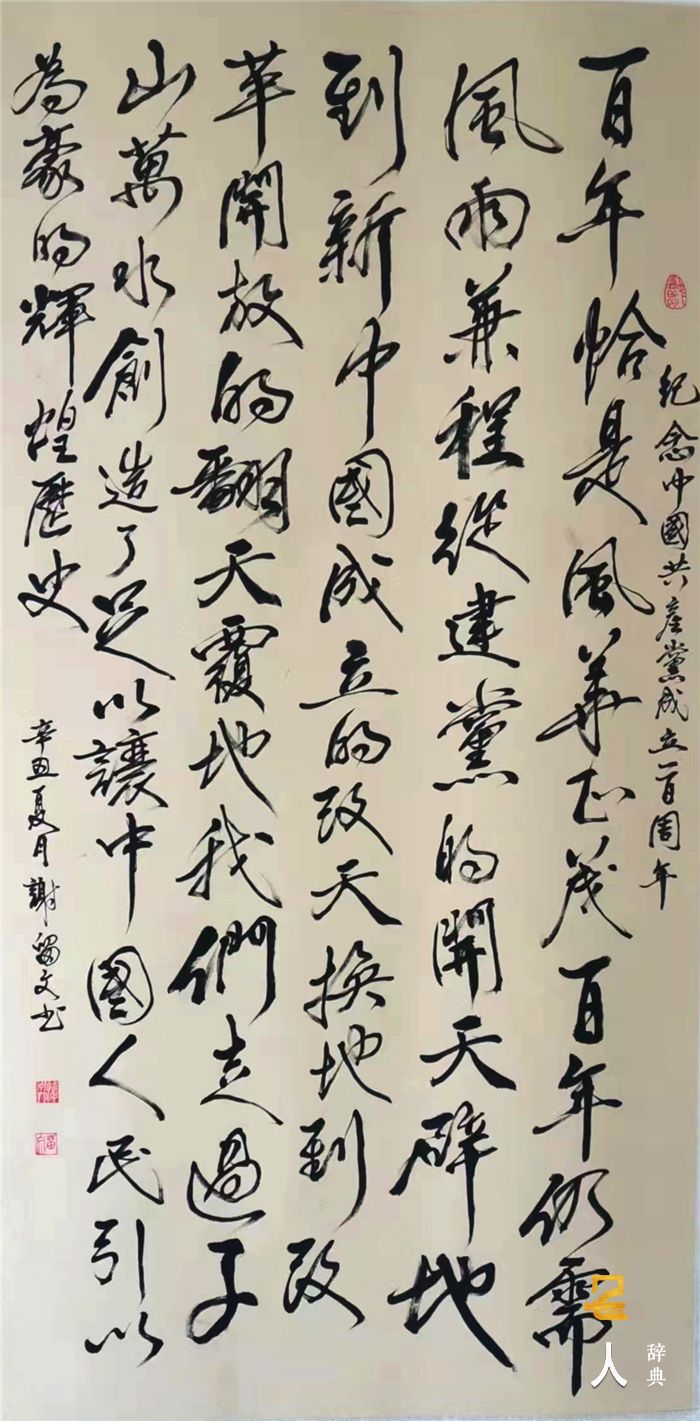 紀念中國共產黨成立一百周年
百年恰是風華正茂百年仍需
風雨兼程從建黨的開天辟地
到新中國成立的改天換地到改
革開放的翻天覆地我們走過千
山萬水創造了足以讓中國人民引以
為豪的輝煌歷史
辛丑夏月謝留文书
人
辞典